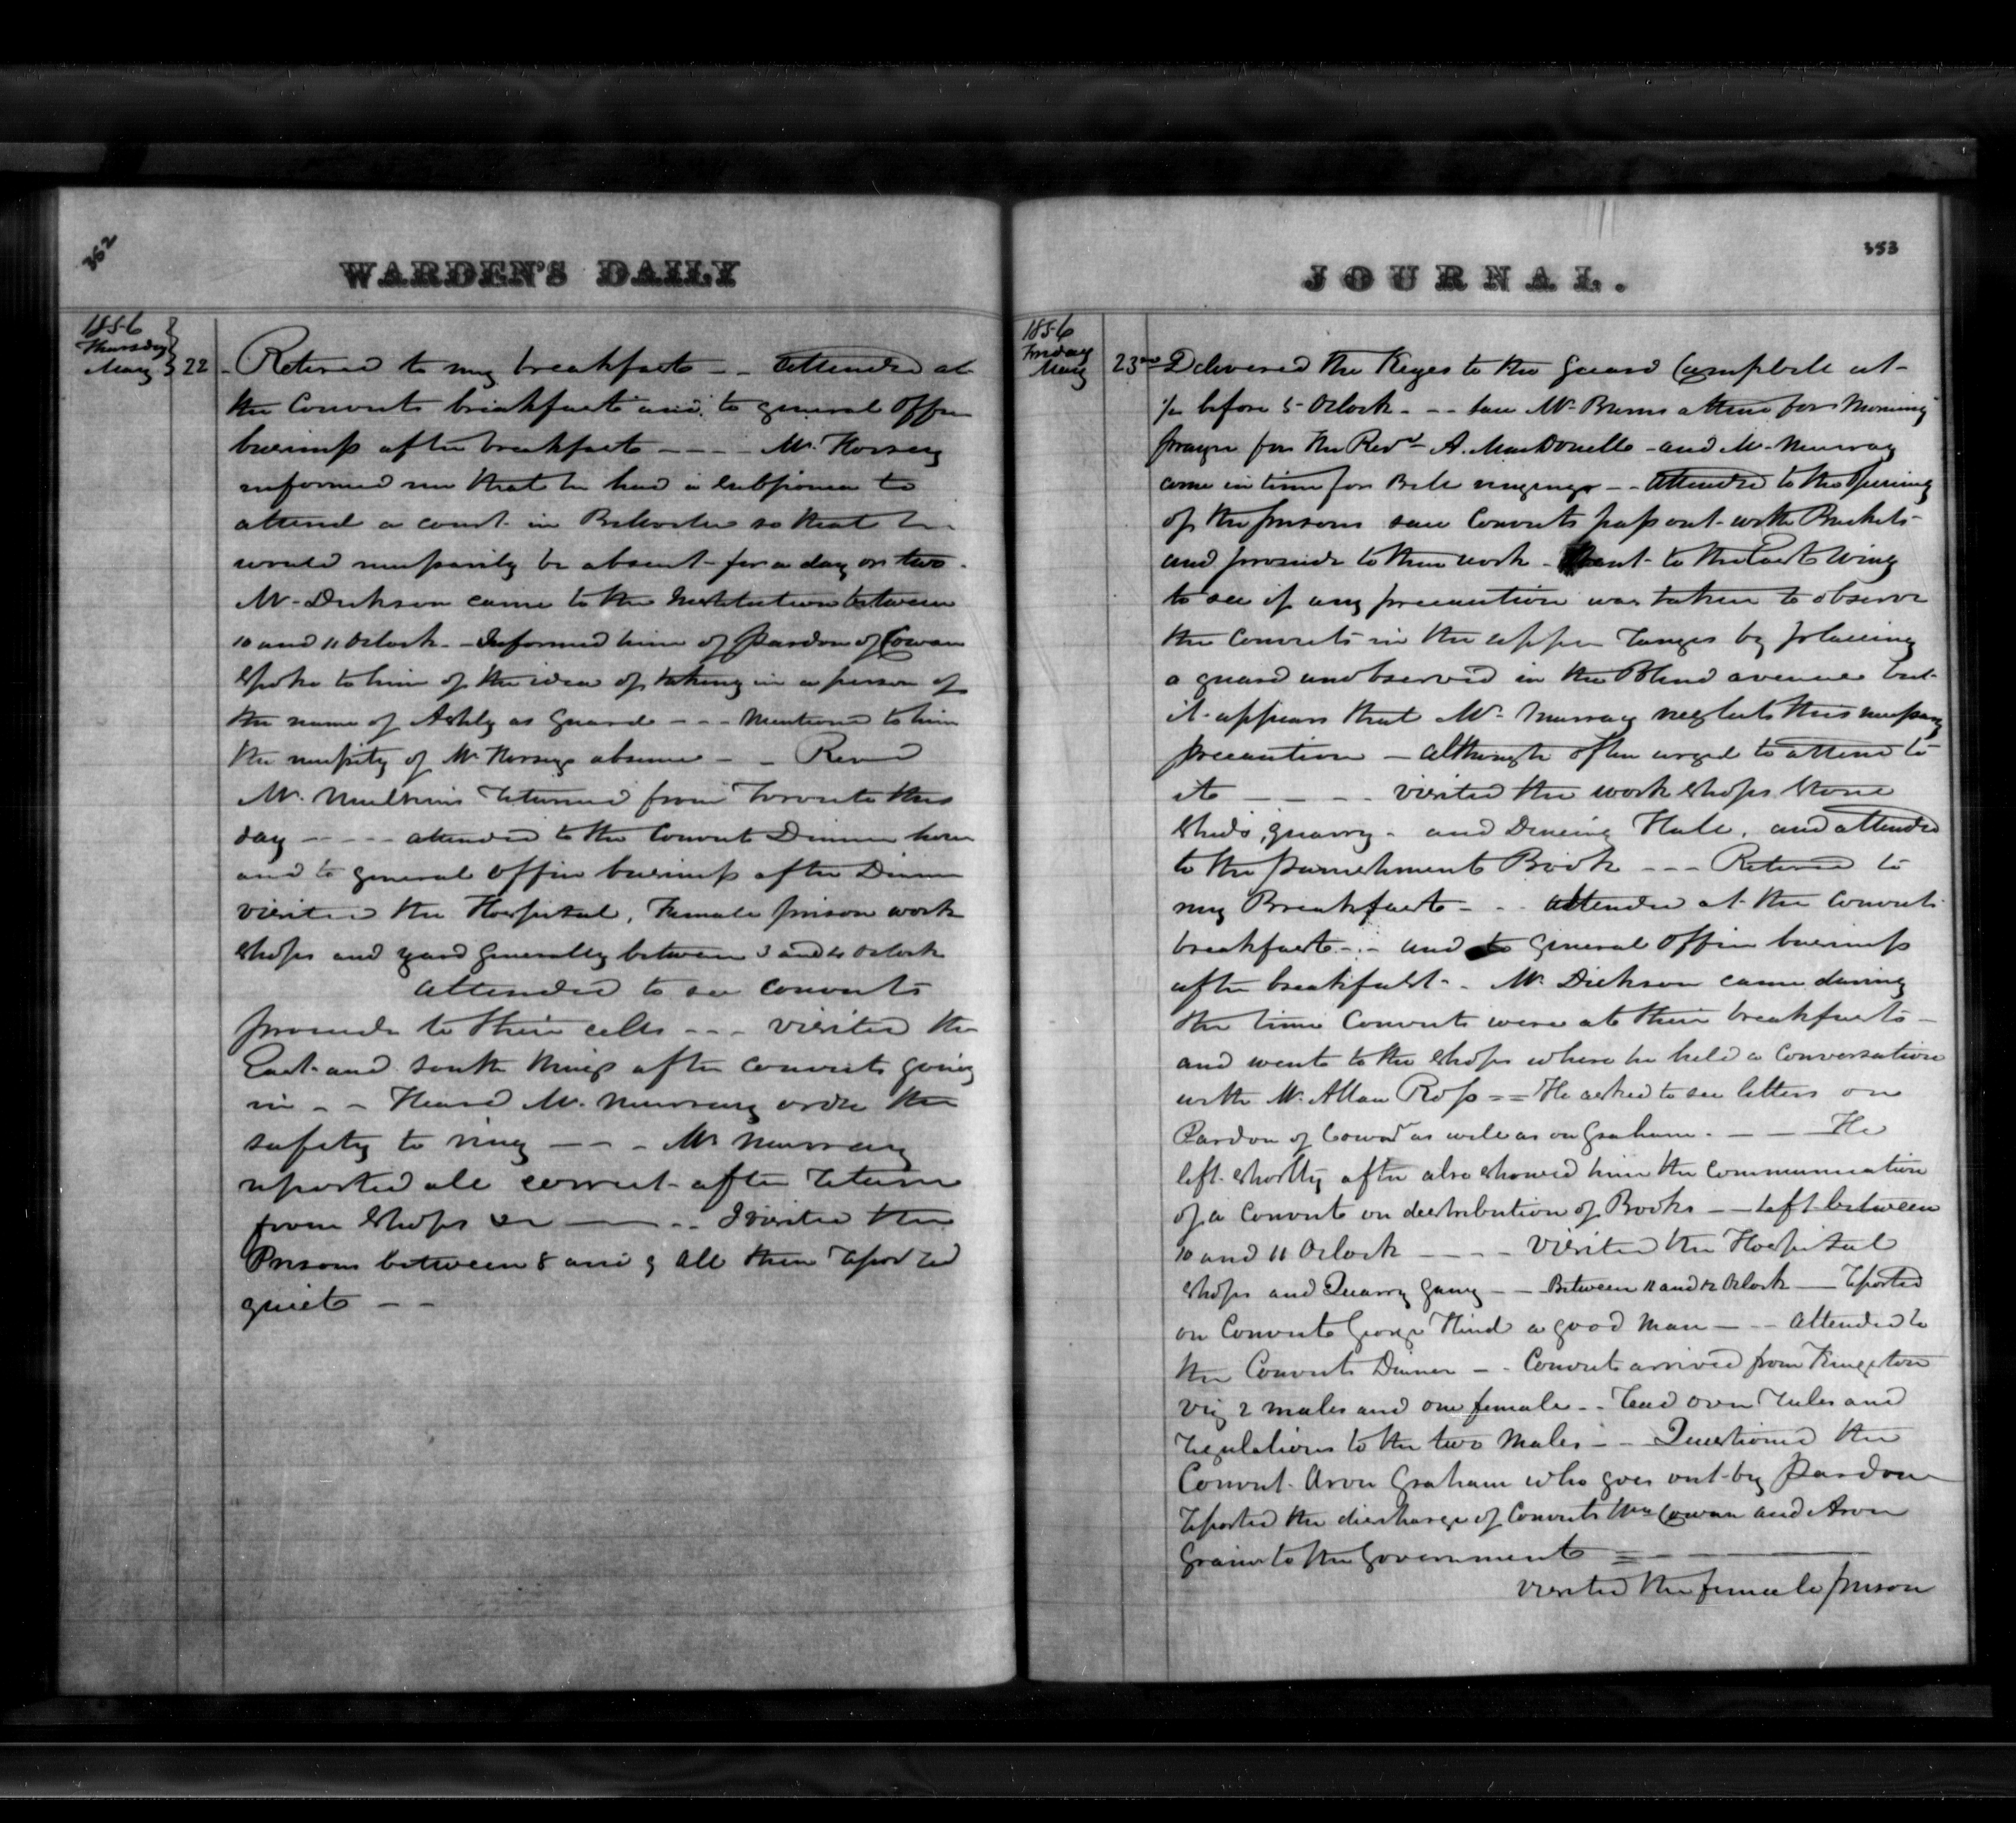 352
WARDEN'S DAILY
1856
Thursday
May 22
Retired to my breakfast - - attended at
the Convicts breakfast and to general Office
business after breakfast - - - - Mr. Horsey
informed me that he had a subpoena to
attend a court in Belleville so that he
would necessarily be absent for a day or two.
Mr. Dickson came to the Institution between
10 and 11 Oclock - Informed him of pardon of Cowan
Spoke to him of the idea of taking in a person of
the name of Ashly as Guard - - - Mentioned to him
the necessity of Mr Horseys absence - - Revd
Mr. Mulkins returned from Toronto this
day - - - - attended to the Convict Dinner hour
and to general Office business after Dinner
visited the Hospital, Female prison work
shops and yard generally between 3 and 4 Oclock
attended to see Convicts
proceede to their cells - - - visited the
East and South Wings after Convicts going
in - - Heard Mr. Murray order the
safety to ring - - - Mr Murray
reported all correct after return
from Shops - - - I visited the
Prisons between 8 and 9 All then reported
quiet - -
353
JOURNAL.
1856
Friday
May
23rd Delivered the Keyes to the Guard Campbell at
1/4 before 5 Oclock - - - saw Mr. Burns attend for Morning
prayer for the Revd A. MacDonell - and Mr. Murray
come in time for Bell ringing - - attended to the Opening
of the prisons saw Convicts pass out with Buckets -
and proceede to their work - Went to the East Wing
to see if any precaution was taken to observe
the Convicts in the upper ranges by placing
a guard unobserved in the Blind avenue but
it appears that Mr. Murray neglects this necessary
precaution - although often urged to attend to
it - - - - visited the work shops Stone
Sheds, quarry - and Dineing Hall, and attended
to the punishment Book - - - Retired to
my Breakfast - - - attended at the Convicts
breakfast - - and to General Office business
after breakfast - - Mr. Dickson came during
the time Convicts were at their breakfast -
and went to the shops where he held a Conversation
with Mr. Allan Ross = = He asked to see letters on
Pardon of Cowan as well as on Graham - - - He
left shortly after also showed him the Communication
of a Convict on destribution of Books - - left between
10 and 11 Oclock - - - - Visited the Hospital
Shops and Quarry gang - - Between 11 and 12 Oclock - reported
on Convict George Hind a good man - - - attended to
the Convicts Dinner - - Convicts arrived from Kingston
viz 2 males and one female - - read over rules and
regulations to the two Males - - Questioned the
Convict Aron Graham who goes out by pardon
reported the discharge of Convicts Wm Cowan and Aron
to the Government = - - -
visited the female prison